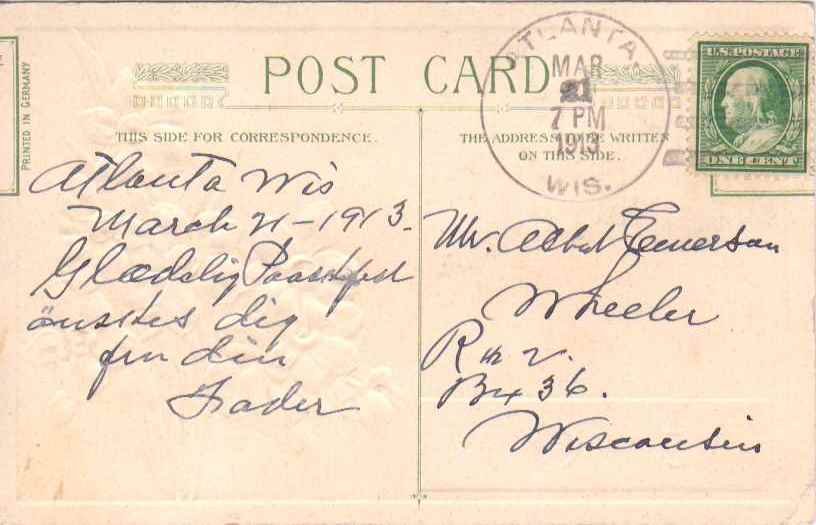 POST CARD
PRINTED IN GERMANY
THIS SIDE FOR CORRESPONDENCE.
THE ADDRESS TO BE WRITTEN
ON THIS SIDE.
ATLANTA,
MAR
21
7 PM
1913
WIS.
U.S. POSTAGE
ONE CENT
Atlanta Wis
March 21-1913.
Glædelig Paaskefest
önskes dig
fra din
Fader
Mr. Albert Emerson
Wheeler
R
Bx 36.
Wisconsin